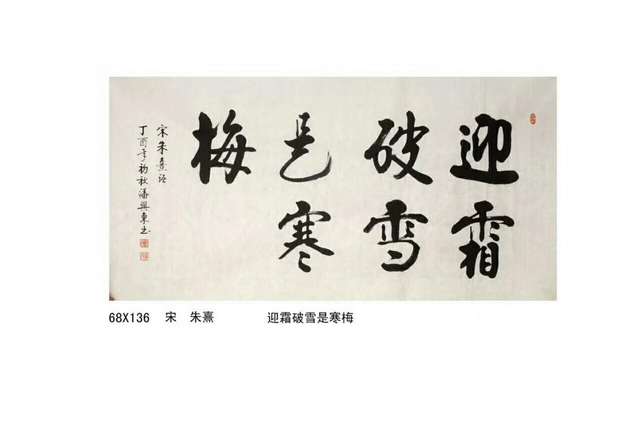 迎霜
破雪
是寒
梅
宋朱熹語
丁酉年初秋潘興東書
68X136 宋 朱熹 迎霜破雪是寒梅